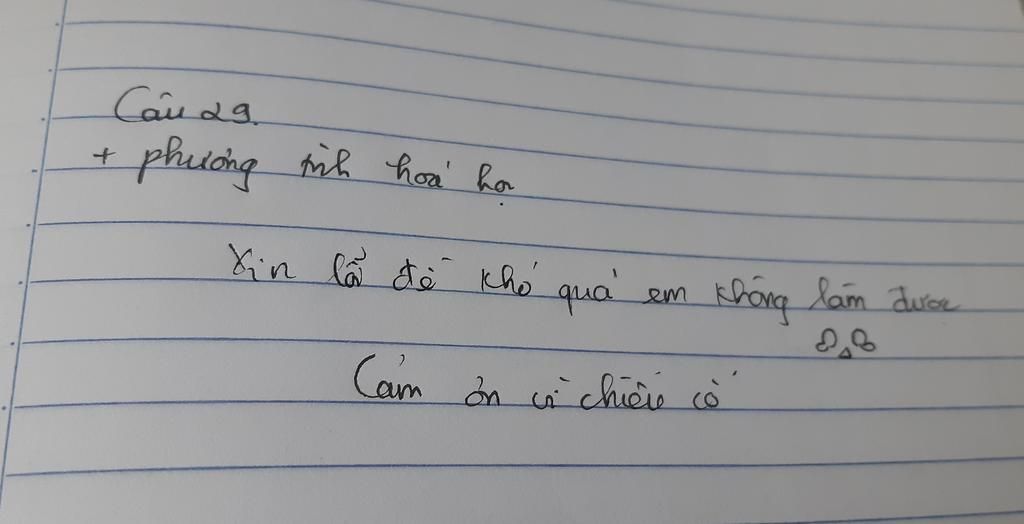 Câu 29.
+ phương tình hoá học
Xin lỗi đề khó quá em không làm được
Cảm ơn vì chiếu cố